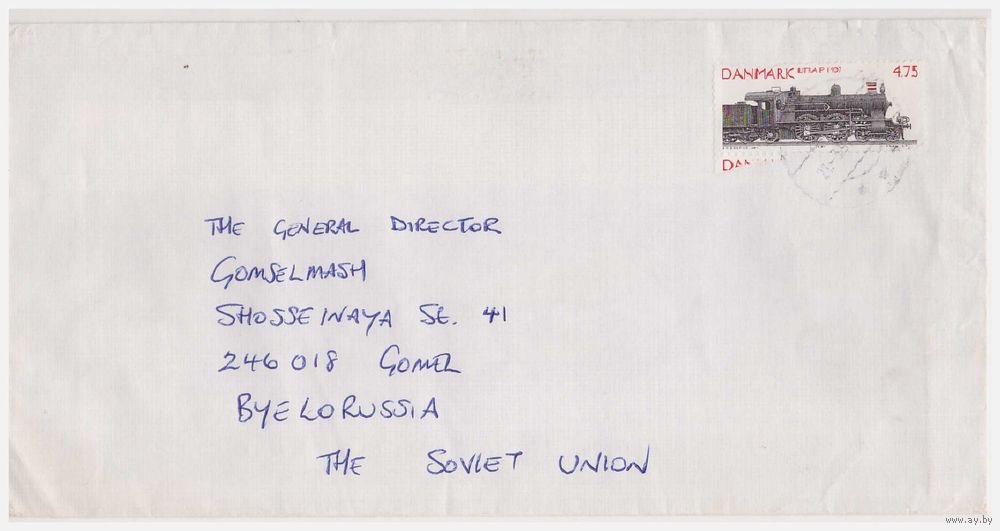 DANMARK LITRA P 1907 4.75
DAN
THE GENERAL DIRECTOR
GOMSELMASH
SHOSSEINAYA St. 41
246 018 GOMEL
BYELORUSSIA
THE SOVIET UNION
www.ay.by